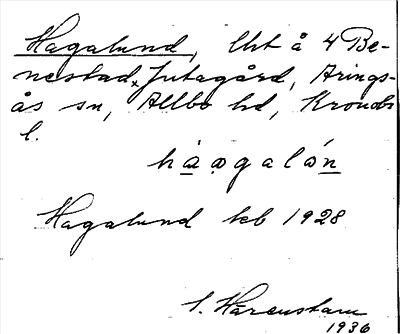 Hagalund, lht å 4 Be-
nestad Jutagård, Arings-
ås sn, Allbo hd, Kronobs
l.
håagalón
Hagalund kb 1928
C. Hårenstam
1936